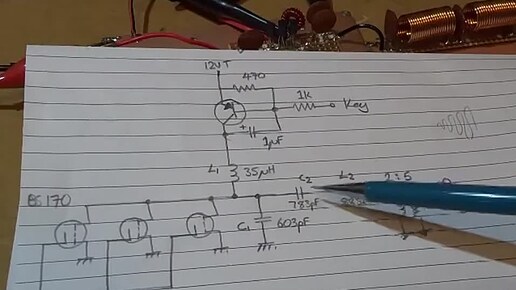 12V T
470
1k
Key
+
1µF
L1
35µH
C2
L2
2:5
BS170
783pF
C1
603pF